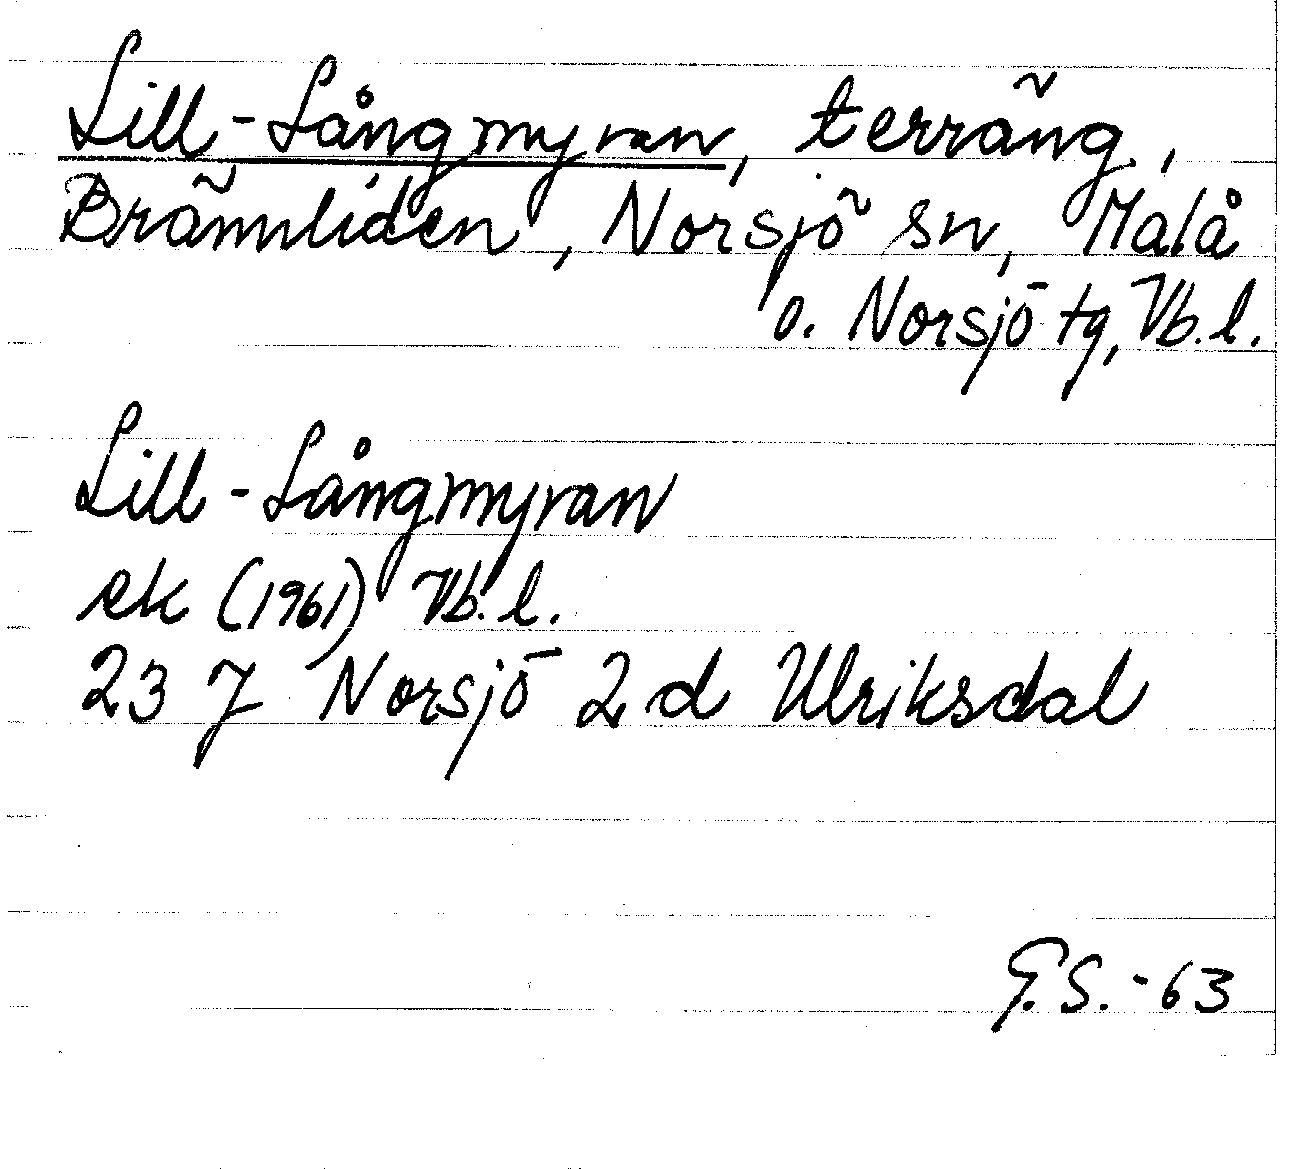 Lill-Långmyran, terräng,
Brännliden, Norsjö sn, Malå
o. Norsjö tg, Vb.l.
Lill-Långmyran
ek (1961) Vb.l.
23 J Norsjö 2 d Ulriksdal
G.S.-63